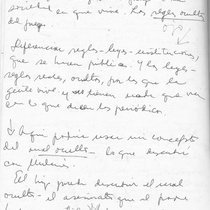 sociedad en que vive. Las reglas ocultas
del juego.
Diferenciar reglas - leyes - instituciones,
que se hacen públicas. Y las leyes -
reglas reales, ocultas, por las que la
gente vive y no tienen nada que ver
con lo que dicen los periódicos
↓ Aquí podría usar mi concepto
del mal oculto - lo que descubrí
con
El hijo puede descubrir el mal
oculto - el asesinato que el padre